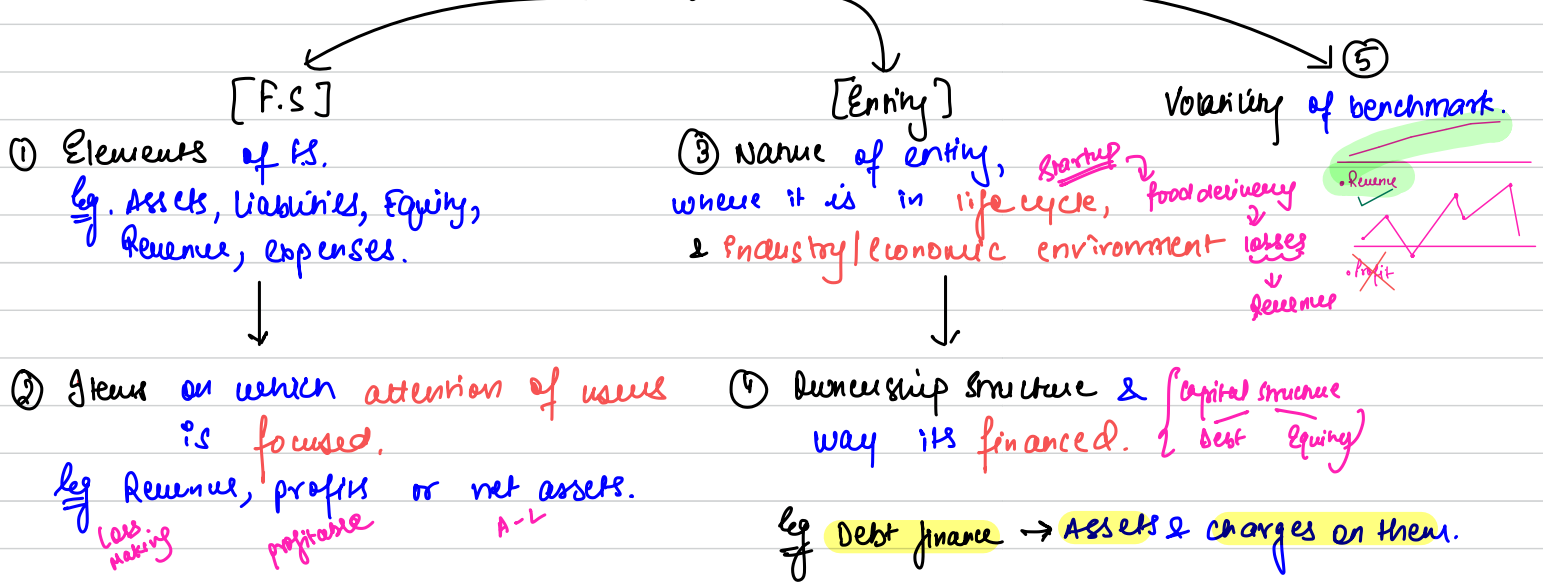 [F.S]
① Elements of F.S.
eg. Assets, Liabilities, Equity,
Revenue, expenses.
② Items on which attention of users
is focused.
eg Revenue, profits or net assets.
Loss making
profitable
A-L
[Entity]
③ Nature of entity,
where it is in lifecycle,
& industry/economic environment
Startup
food delivery
losses
Revenue
④ Ownership structure &
way its financed.
{Capital structure
Debt Equity}
eg Debt finance → Assets & charges on them.
⑤
Volatility of benchmark.
• Revenue
• Profit